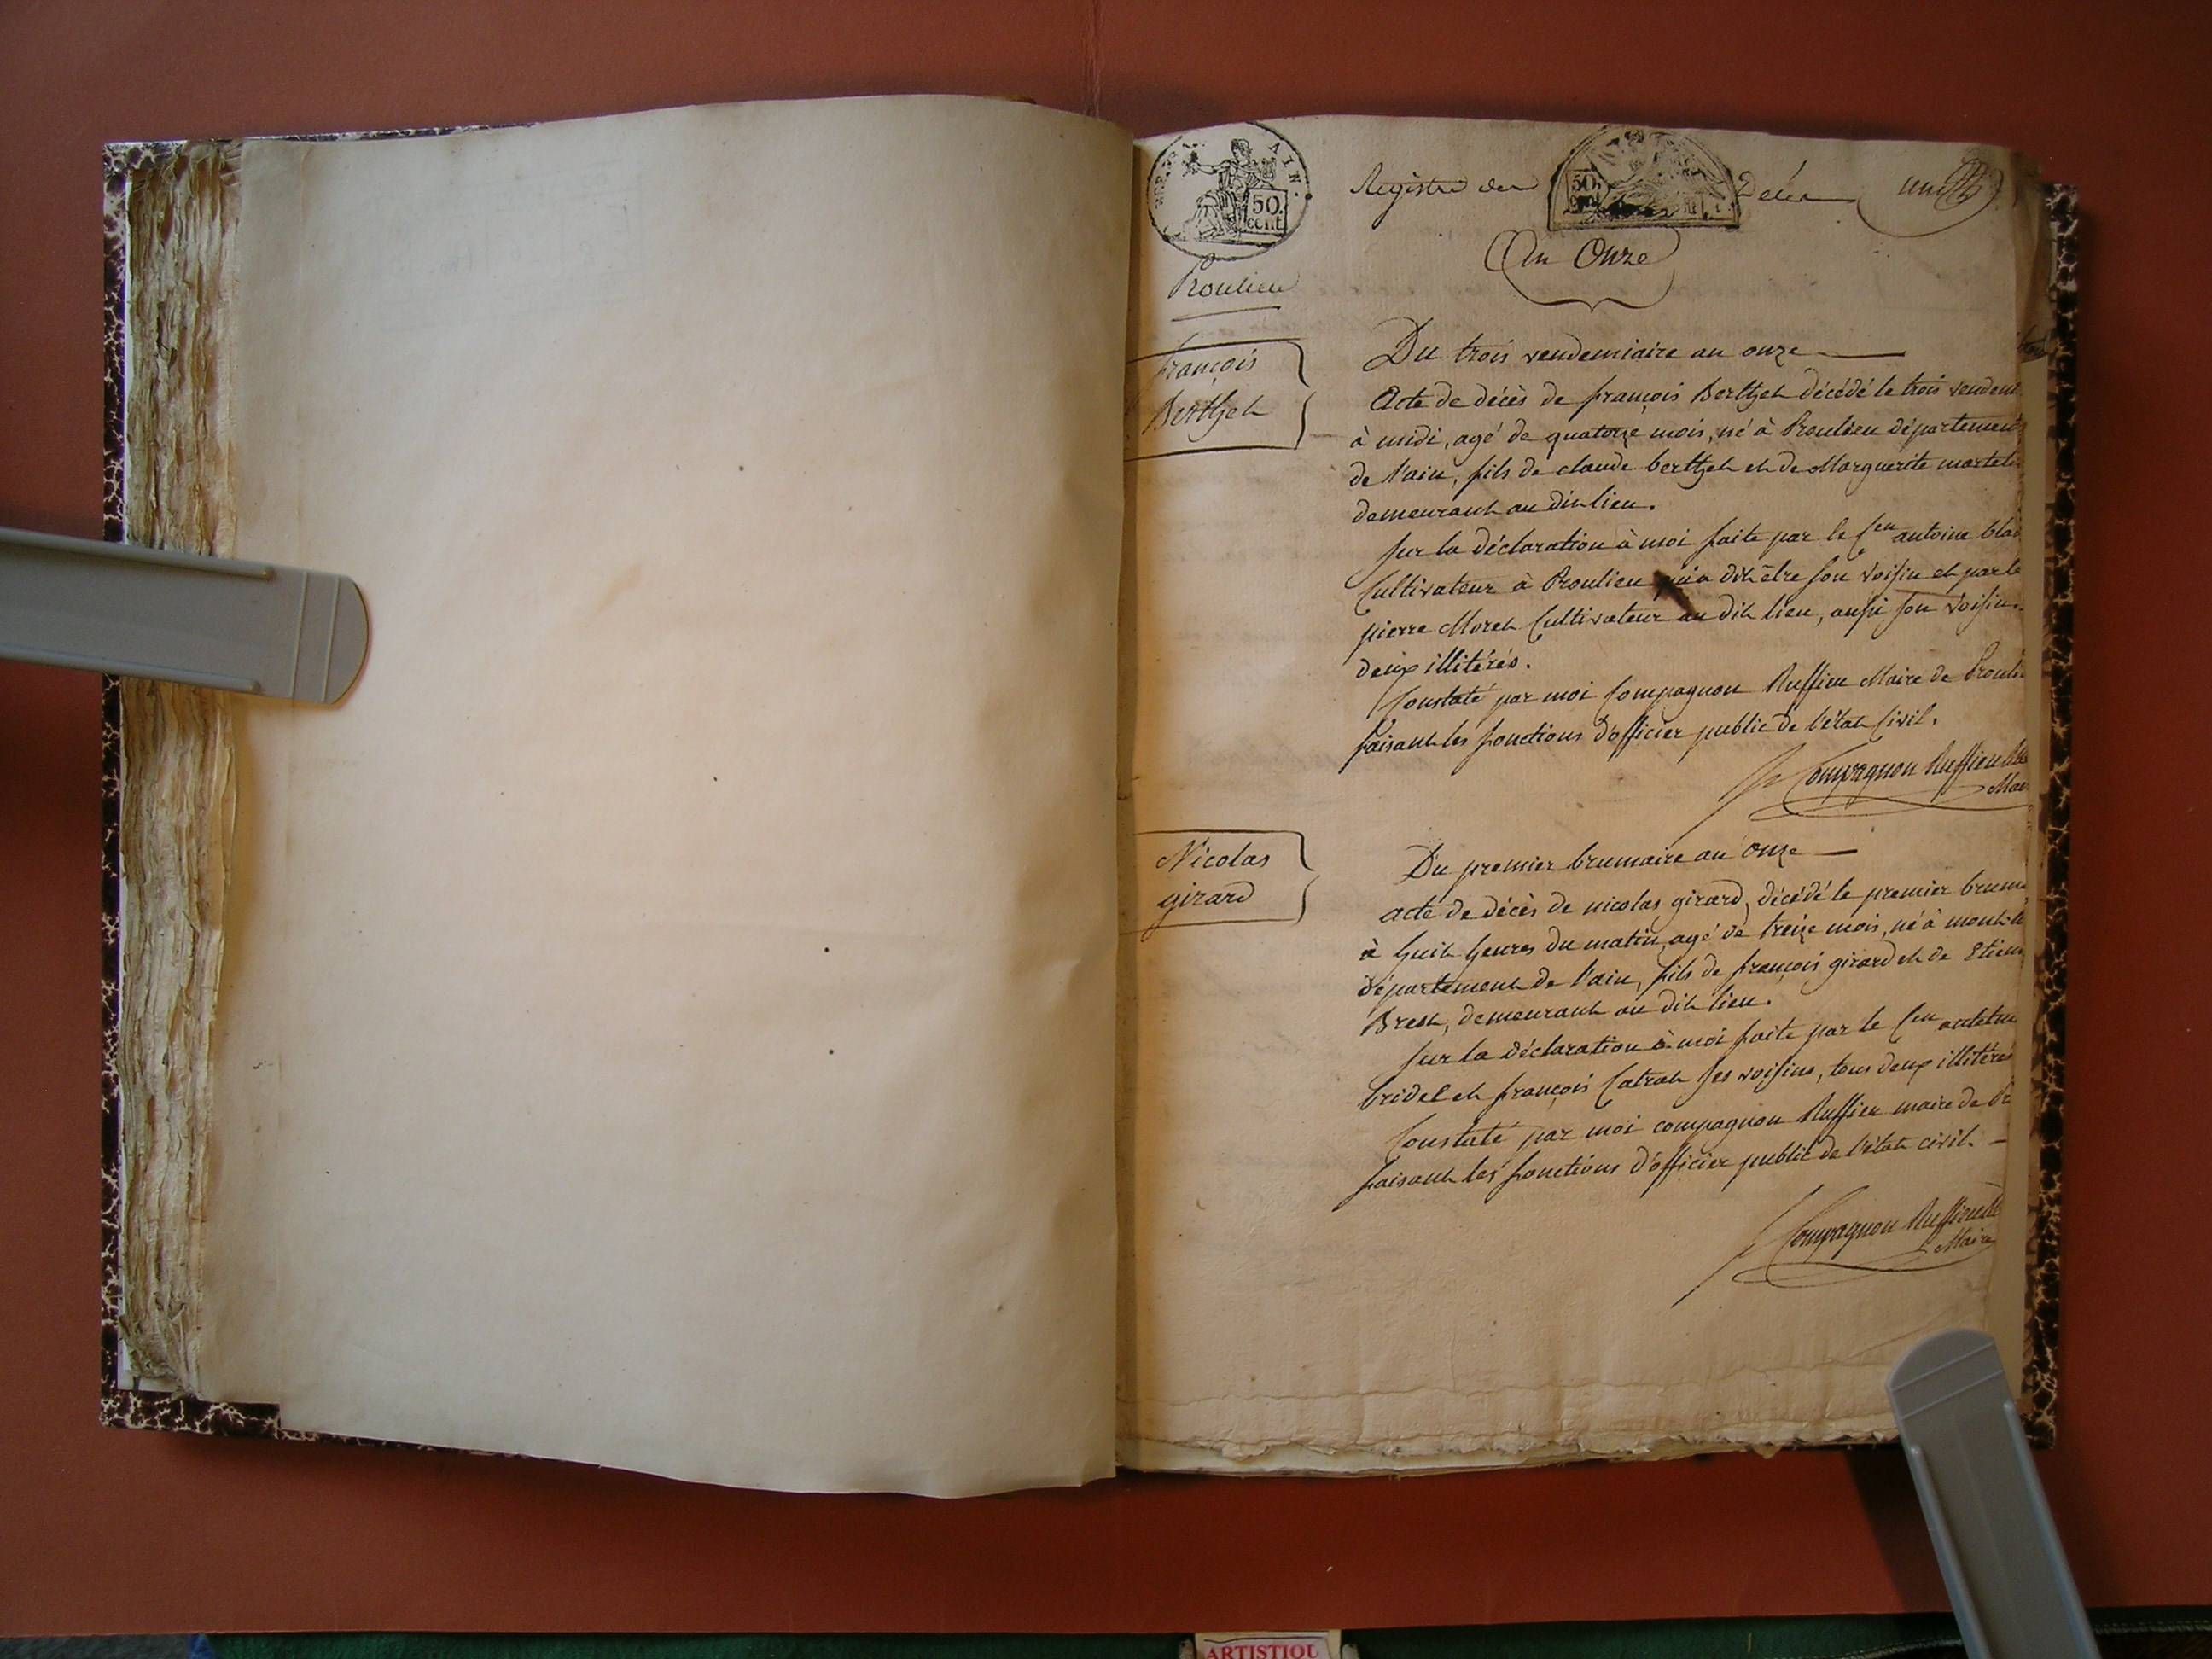 AIN.
50.
cent.
Registre des Décès
un
50.
An Onze
Proulieu
françois
Berthet
Du trois vendemiaire an onze
Acte de décès de françois Berthet décédé le trois vendem
à midi, agé de quatorze mois, né à Proulieu département
de l'ain, fils de claude berthet et de Marguerite martel
demeurant au dit lieu.
sur la déclaration à moi faite par le Cen antoine blan
Cultivateur à Proulieu qui a dit être son voisin et par le
pierre Moret Cultivateur au dit lieu, aussi son voisin
deux illitérés.
Constaté par moi Compagnon Ruffieu Maire de Proulie
faisant les fonctions d'officier public de l'état Civil.
Compagnon Ruffieu
Mai
Nicolas
girard
Du premier brumaire an onze
acte de décès de nicolas girard, décédé le premier brum
à huit heures du matin, agé de treize mois, né à
département de l'ain, fils de françois girard et de Etien
Bret, demeurant au dit lieu.
sur la déclaration à moi faite par le Cen
bridet et françois Catrat ses voisins, tous deux illitérés
Constaté par moi compagnon Ruffieu maire de Pr
faisant les fonctions d'officier public de l'état civil.
Compagnon Ruffieu
Maire
ARTISTIQU